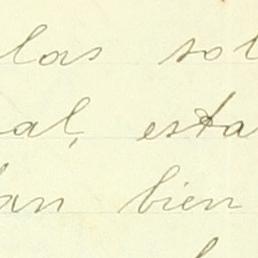 las sol
al, esta
an bien